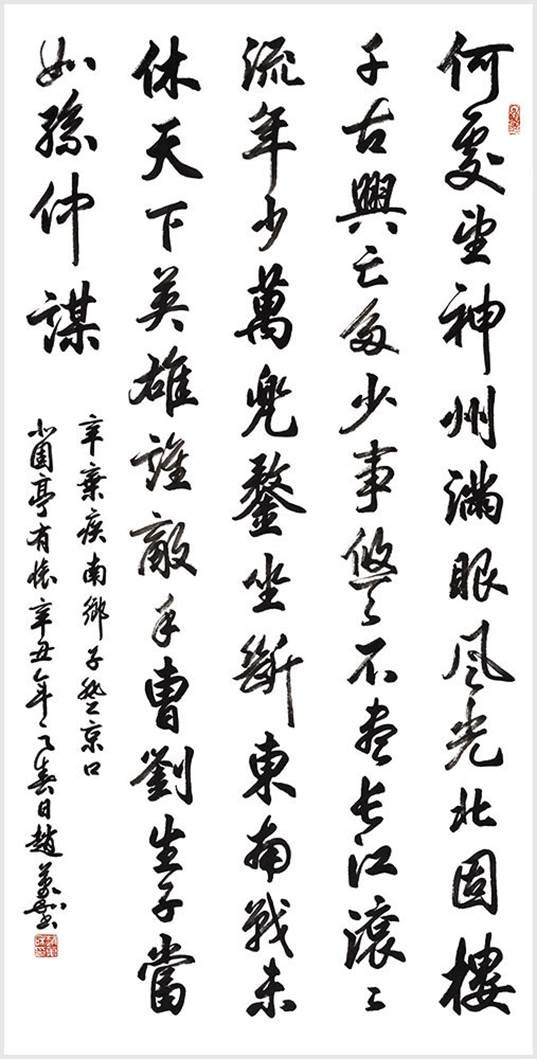 何處望神州滿眼風光北固樓
千古興亡多少事悠々不盡長江滾々
流年少萬兜鍪坐斷東南戰未
休天下英雄誰敵手曹劉生子當
如孫仲謀
辛棄疾南鄉子登京口
北固亭有懷辛丑年之春日趙